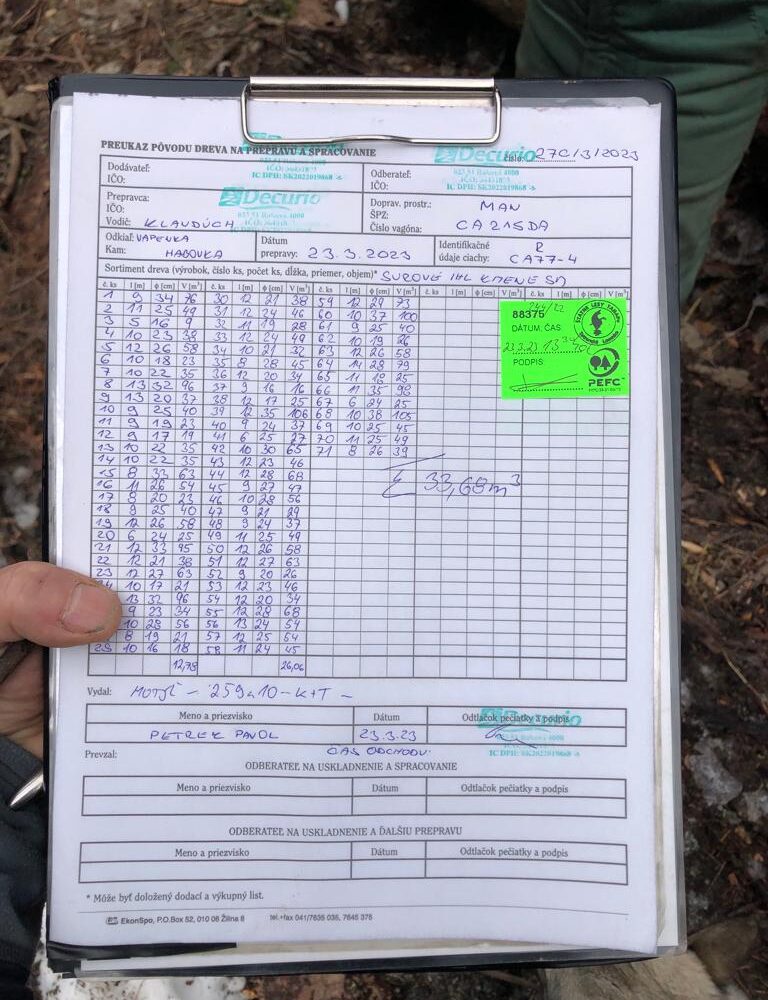 PREUKAZ PÔVODU DREVA NA PREPRAVU A SPRACOVANIE
Decurio
číslo: 270/3/2023
IČO: 36431875
IČ DPH: SK2022019868
Dodávateľ:
IČO:
Odberateľ:
IČO:
023 51 Raková 1000
IČ DPH: SK2022019868
Prepravca:
IČO:
Vodič: KLANDÚCH
Decurio
Doprav. prostr.: MAN
ŠPZ:
Číslo vagóna: CA 215DA
Odkiaľ: VAPENKA
Kam: HABOVKA
Dátum
prepravy: 23.3.2023
Identifikačné R
údaje ciachy: CA77-4
Sortiment dreva (výrobok, číslo ks, počet ks, dĺžka, priemer, objem)* SUROVÉ IHL KMENE SM
č. ks l [m] φ [cm] V [m³] č. ks l [m] φ [cm] V [m³] č. ks l [m] φ [cm] V [m³] č. ks l [m] φ [cm] V [m³] č. ks l [m] φ [cm] V [m³]
1 9 34 76 30 12 21 38 59 12 29 73
2 11 25 49 31 12 24 46 60 10 37 100
3 5 16 9 32 11 19 28 61 9 25 40
4 10 23 38 33 12 24 49 62 10 19 26
5 12 26 58 34 10 21 32 63 12 26 58
6 10 18 23 35 8 28 45 64 14 28 79
7 10 22 35 36 12 20 34 65 11 18 25
8 13 32 96 37 9 16 16 66 11 35 98
9 13 20 37 38 12 17 25 67 6 24 25
10 9 25 40 39 12 35 106 68 10 38 105
11 9 19 23 40 9 24 37 69 10 25 45
12 9 17 19 41 6 25 27 70 11 25 49
13 10 22 35 42 10 30 65 71 8 26 39
14 10 22 35 43 12 23 46
15 8 33 63 44 12 28 68
16 11 26 54 45 9 27 47
17 8 20 23 46 10 28 56
18 9 25 40 47 9 21 29
19 12 26 58 48 9 24 37
20 6 24 25 49 11 25 49
21 12 33 95 50 12 26 58
22 12 21 38 51 12 27 63
23 12 27 63 52 9 20 26
10 17 21 53 12 23 46
13 32 96 54 12 20 34
9 23 34 55 12 28 68
10 28 56 56 13 24 54
8 19 21 57 12 25 54
10 16 18 58 11 24 45
12,78 26,06
Σ 33,68 m³
244/22
88375
DÁTUM, ČAS
23.3.23 13
PODPIS:
PEFC
Vydal: 259a10-K+T-
Meno a priezvisko Dátum Odtlačok pečiatky a podpis
Decurio
PETREK PAVOL 23.3.23
IČ DPH: SK2022019868
Prevzal: ČAS ODCHODU:
ODBERATEĽ NA USKLADNENIE A SPRACOVANIE
Meno a priezvisko Dátum Odtlačok pečiatky a podpis
ODBERATEĽ NA USKLADNENIE A ĎALŠIU PREPRAVU
Meno a priezvisko Dátum Odtlačok pečiatky a podpis
* Môže byť doložený dodací a výkupný list.
EkonSpo, P.O.Box 52, 010 06 Žilina 6 tel.+fax 041/7635 035, 7645 376